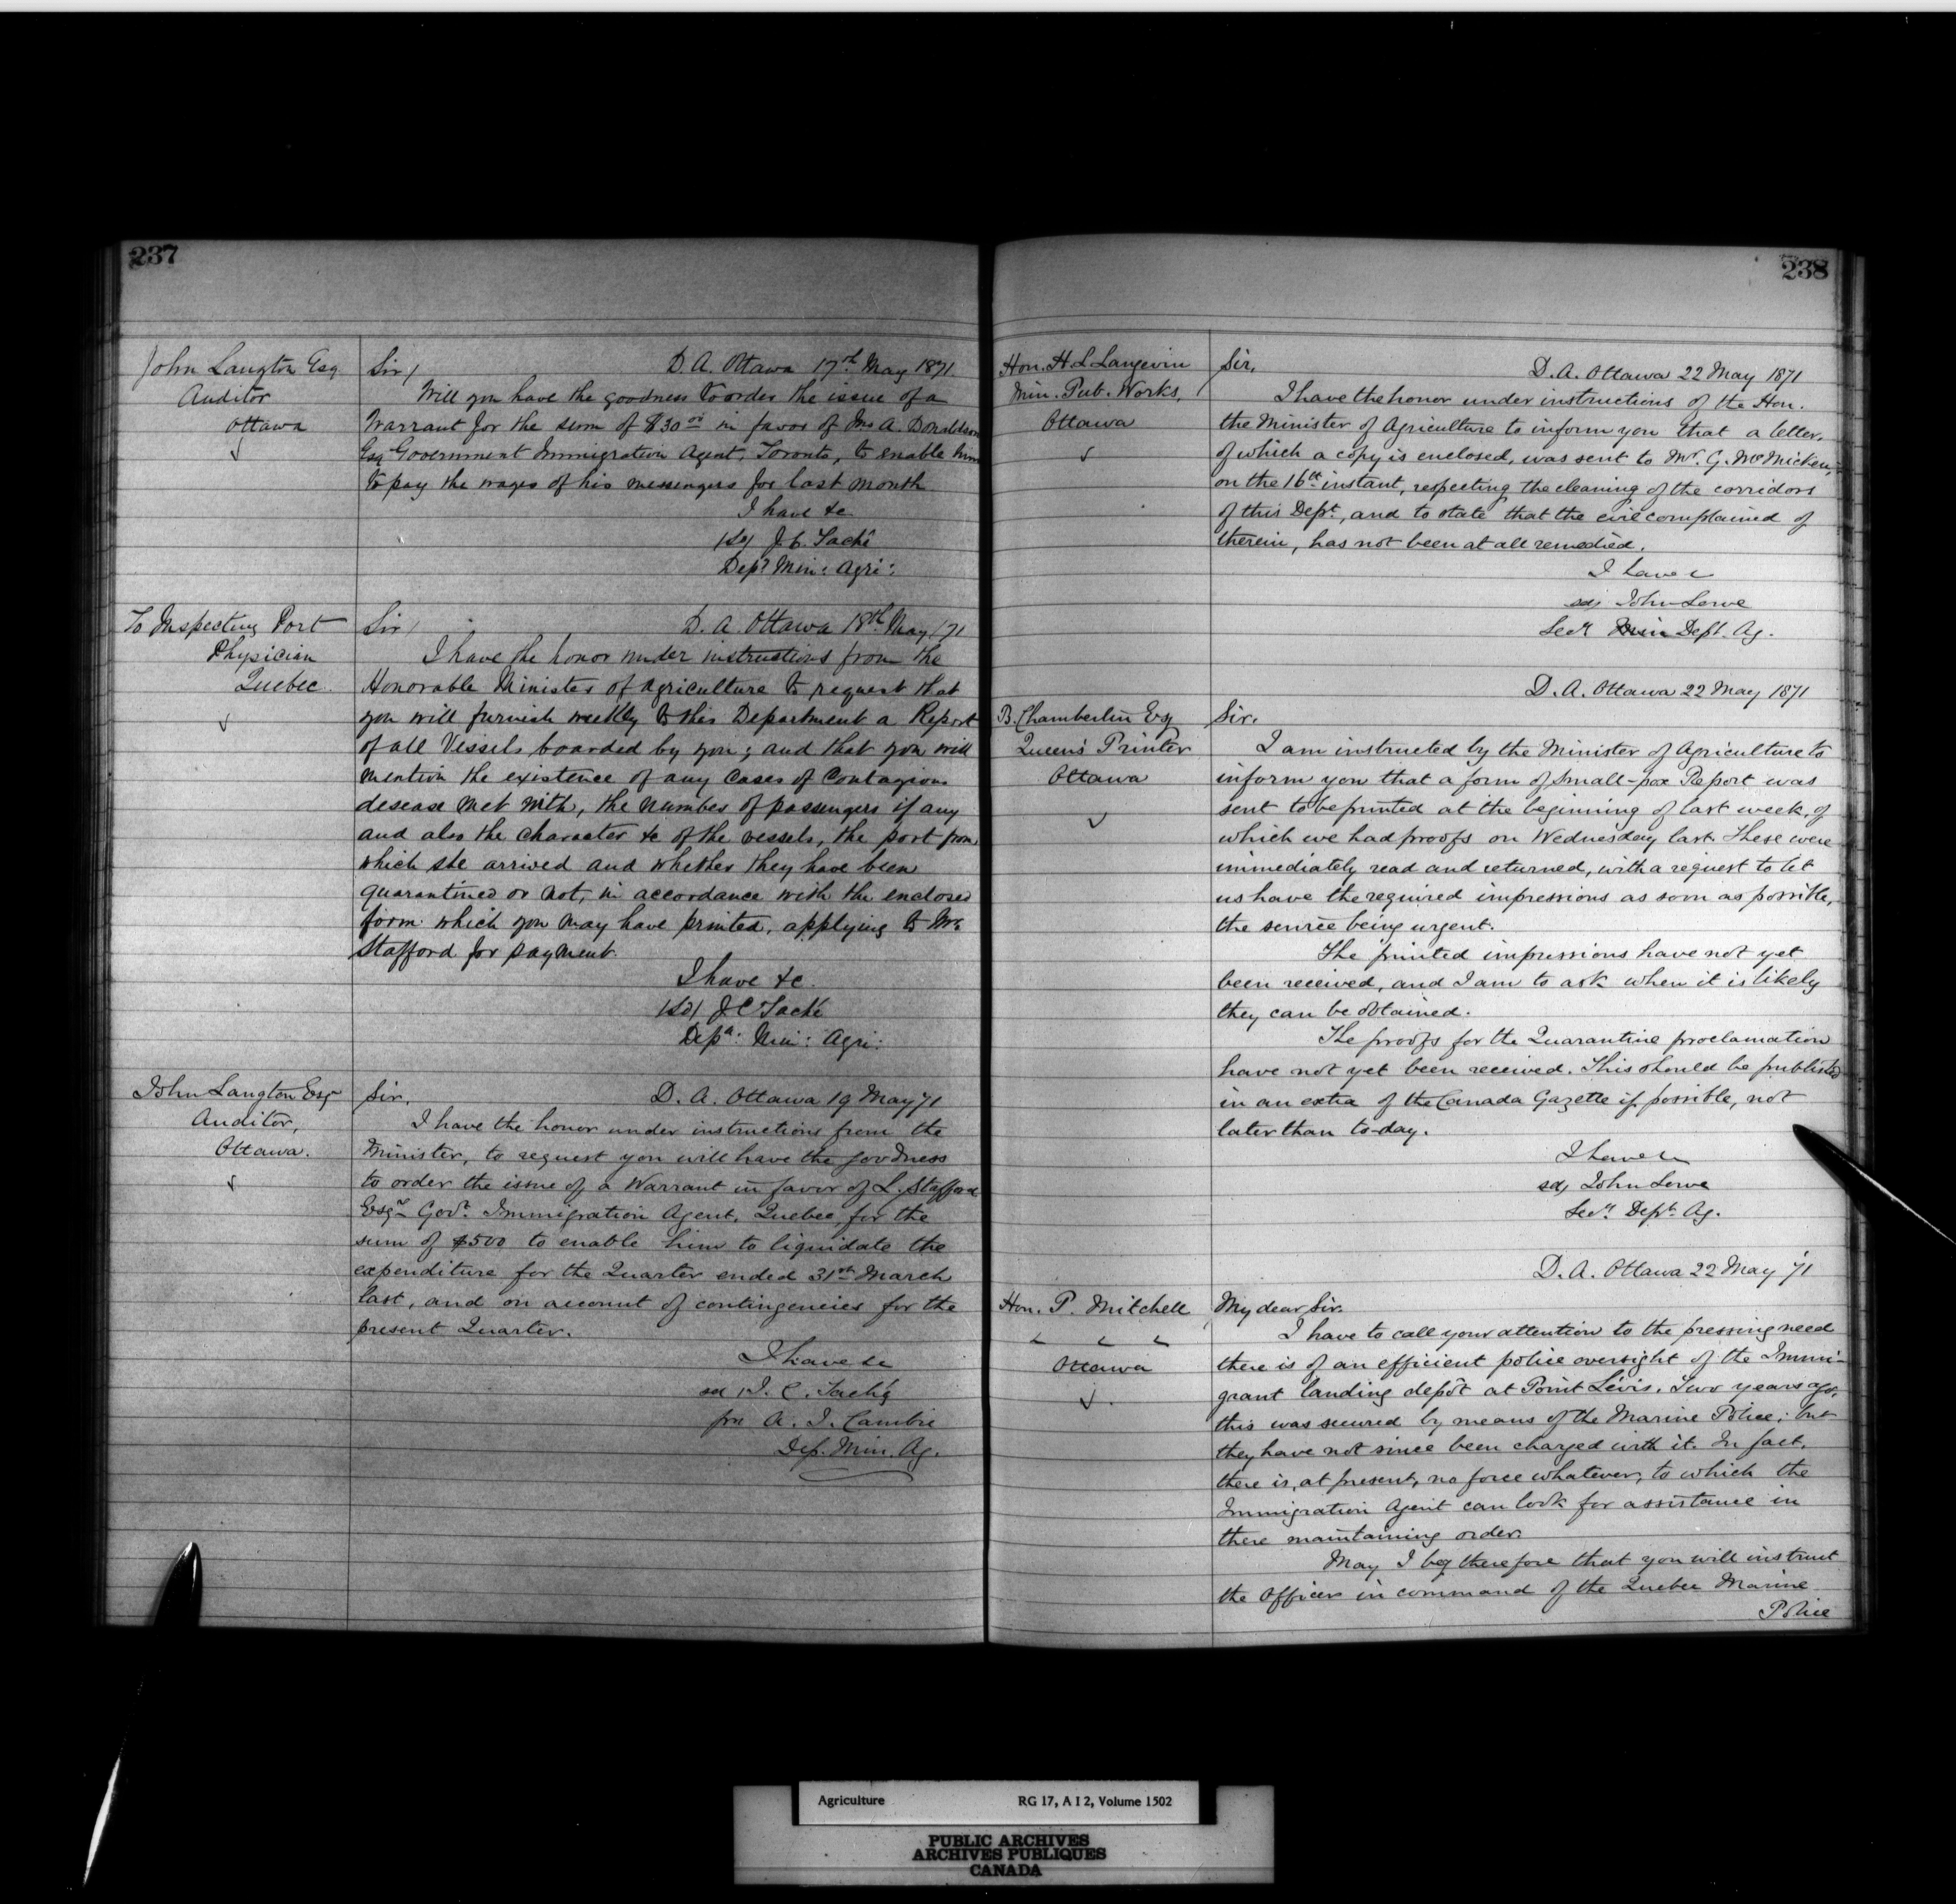 237
John Langton Esq
Auditor
Ottawa
Sir/ D. A. Ottawa 17th May 1871
Will you have the goodness to order the issue of a
Warrant for the sum of $30 00 in favor of Jno A. Donaldson
Esq Government Immigration Agent, Toronto, to enable him
to pay the wages of his messengers for last month
I have &c
/Sd/ J. C. Taché
Depy Min: Agri:
To Inspecting Port
Physician
Quebec.
Sir/ D. A. Ottawa 18th May /71
I have the honor under instructions from the
Honorable Minister of Agriculture to request that
you will furnish weekly to this Department a Report
of all Vessels boarded by you; and that you will
mention the existence of any Cases of Contagious
desease met with, the number of passengers if any
and also the character &c of the vessels, the port from
which she arrived and whether they have been
quarantined or not, in accordance with the enclosed
form which you may have printed, applying to Mr
Stafford for payment.
I have &c.
/Sd/ J C Taché
Depy: Min: Agri:
John Langton Esqr
Auditor,
Ottawa.
Sir. D. A. Ottawa 19 May 71
I have the honor under instructions from the
Minister, to request you will have the goodness
to order the issue of a Warrant in favor of L. Stafford
Esqre Govt. Immigration Agent, Quebec, for the
sum of $500 to enable him to liquidate the
expenditure for the Quarter ended 31st March
last, and on account of contingencies for the
present Quarter.
I have &c
sd J. C. Taché
per A. J. Cambie
Dep. Min. Ag.
238
Hon. H. L. Langevin
Min. Pub. Works,
Ottawa
Sir, D. A. Ottawa 22 May 1871
I have the honor under instructions of the Hon.
the Minister of Agriculture to inform you that a letter,
of which a copy is enclosed, was sent to Mr. G. McMicken,
on the 16th instant, respecting the cleaning of the corridors
of this Dept., and to state that the evil complained of
therein, has not been at all remedied.
I have &c
sd/ John Lowe
Secy Dept. Ag.
D. A. Ottawa 22 May 1871
B. Chamberlin Esq
Queen's Printer
Ottawa
Sir.
I am instructed by the Minister of Agriculture to
inform you that a form of Small-pox Report was
sent to be printed at the beginning of last week, of
which we had proofs on Wednesday last. These were
immediately read and returned, with a request to let
us have the required impressions as soon as possible,
the service being urgent.
The printed impressions have not yet
been received, and I am to ask when it is likely
they can be obtained.
The proofs for the Quarantine proclamation
have not yet been received. This should be published
in an extra of the Canada Gazette if possible, not
later than to-day.
I have &c
sd/ John Lowe
Secy. Dept. Ag.
D. A. Ottawa 22 May '71
Hon. P. Mitchell
Ottawa
My dear Sir.
I have to call your attention to the pressing need
there is of an efficient police oversight of the Immi-
grant landing depôt at Point Lévis. Two years ago,
this was secured by means of the Marine Police; but
they have not since been charged with it. In fact,
there is, at present, no force whatever, to which the
Immigration Agent can look for assistance in
there maintaining order.
May I beg therefore that you will instruct
the Officer in command of the Quebec Marine
Police
Agriculture RG 17, A I 2, Volume 1502
PUBLIC ARCHIVES
ARCHIVES PUBLIQUES
CANADA